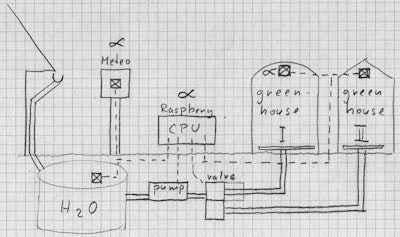 ∝
Meteo
∝
Raspberry
CPU
∝
green-
house
I
green
house
II
H2O
pump
valve